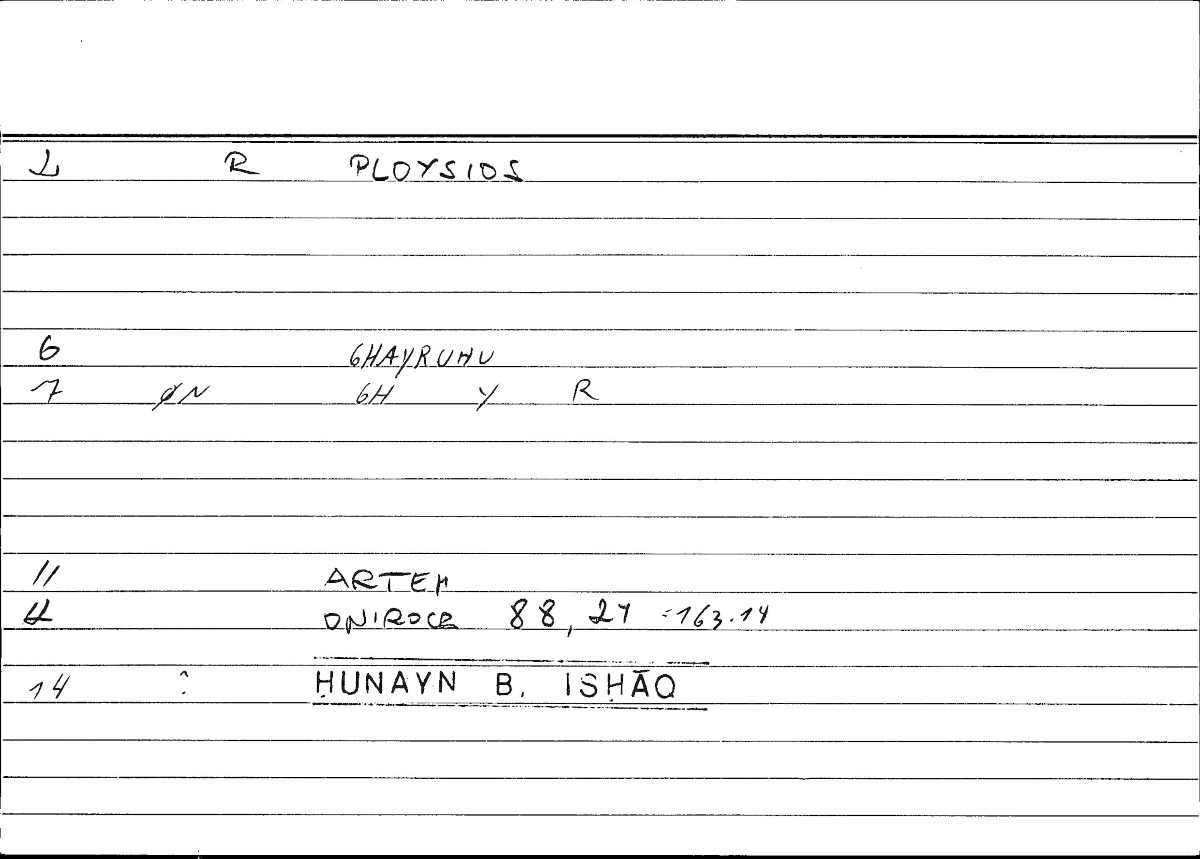 1 R PLOYSIOS
6 GHAYRUHU
7 ØN GH Y R
11 ARTEM
12 ONIROCR 88, 21 = 163.14
14 : HUNAYN B. ISḤĀQ